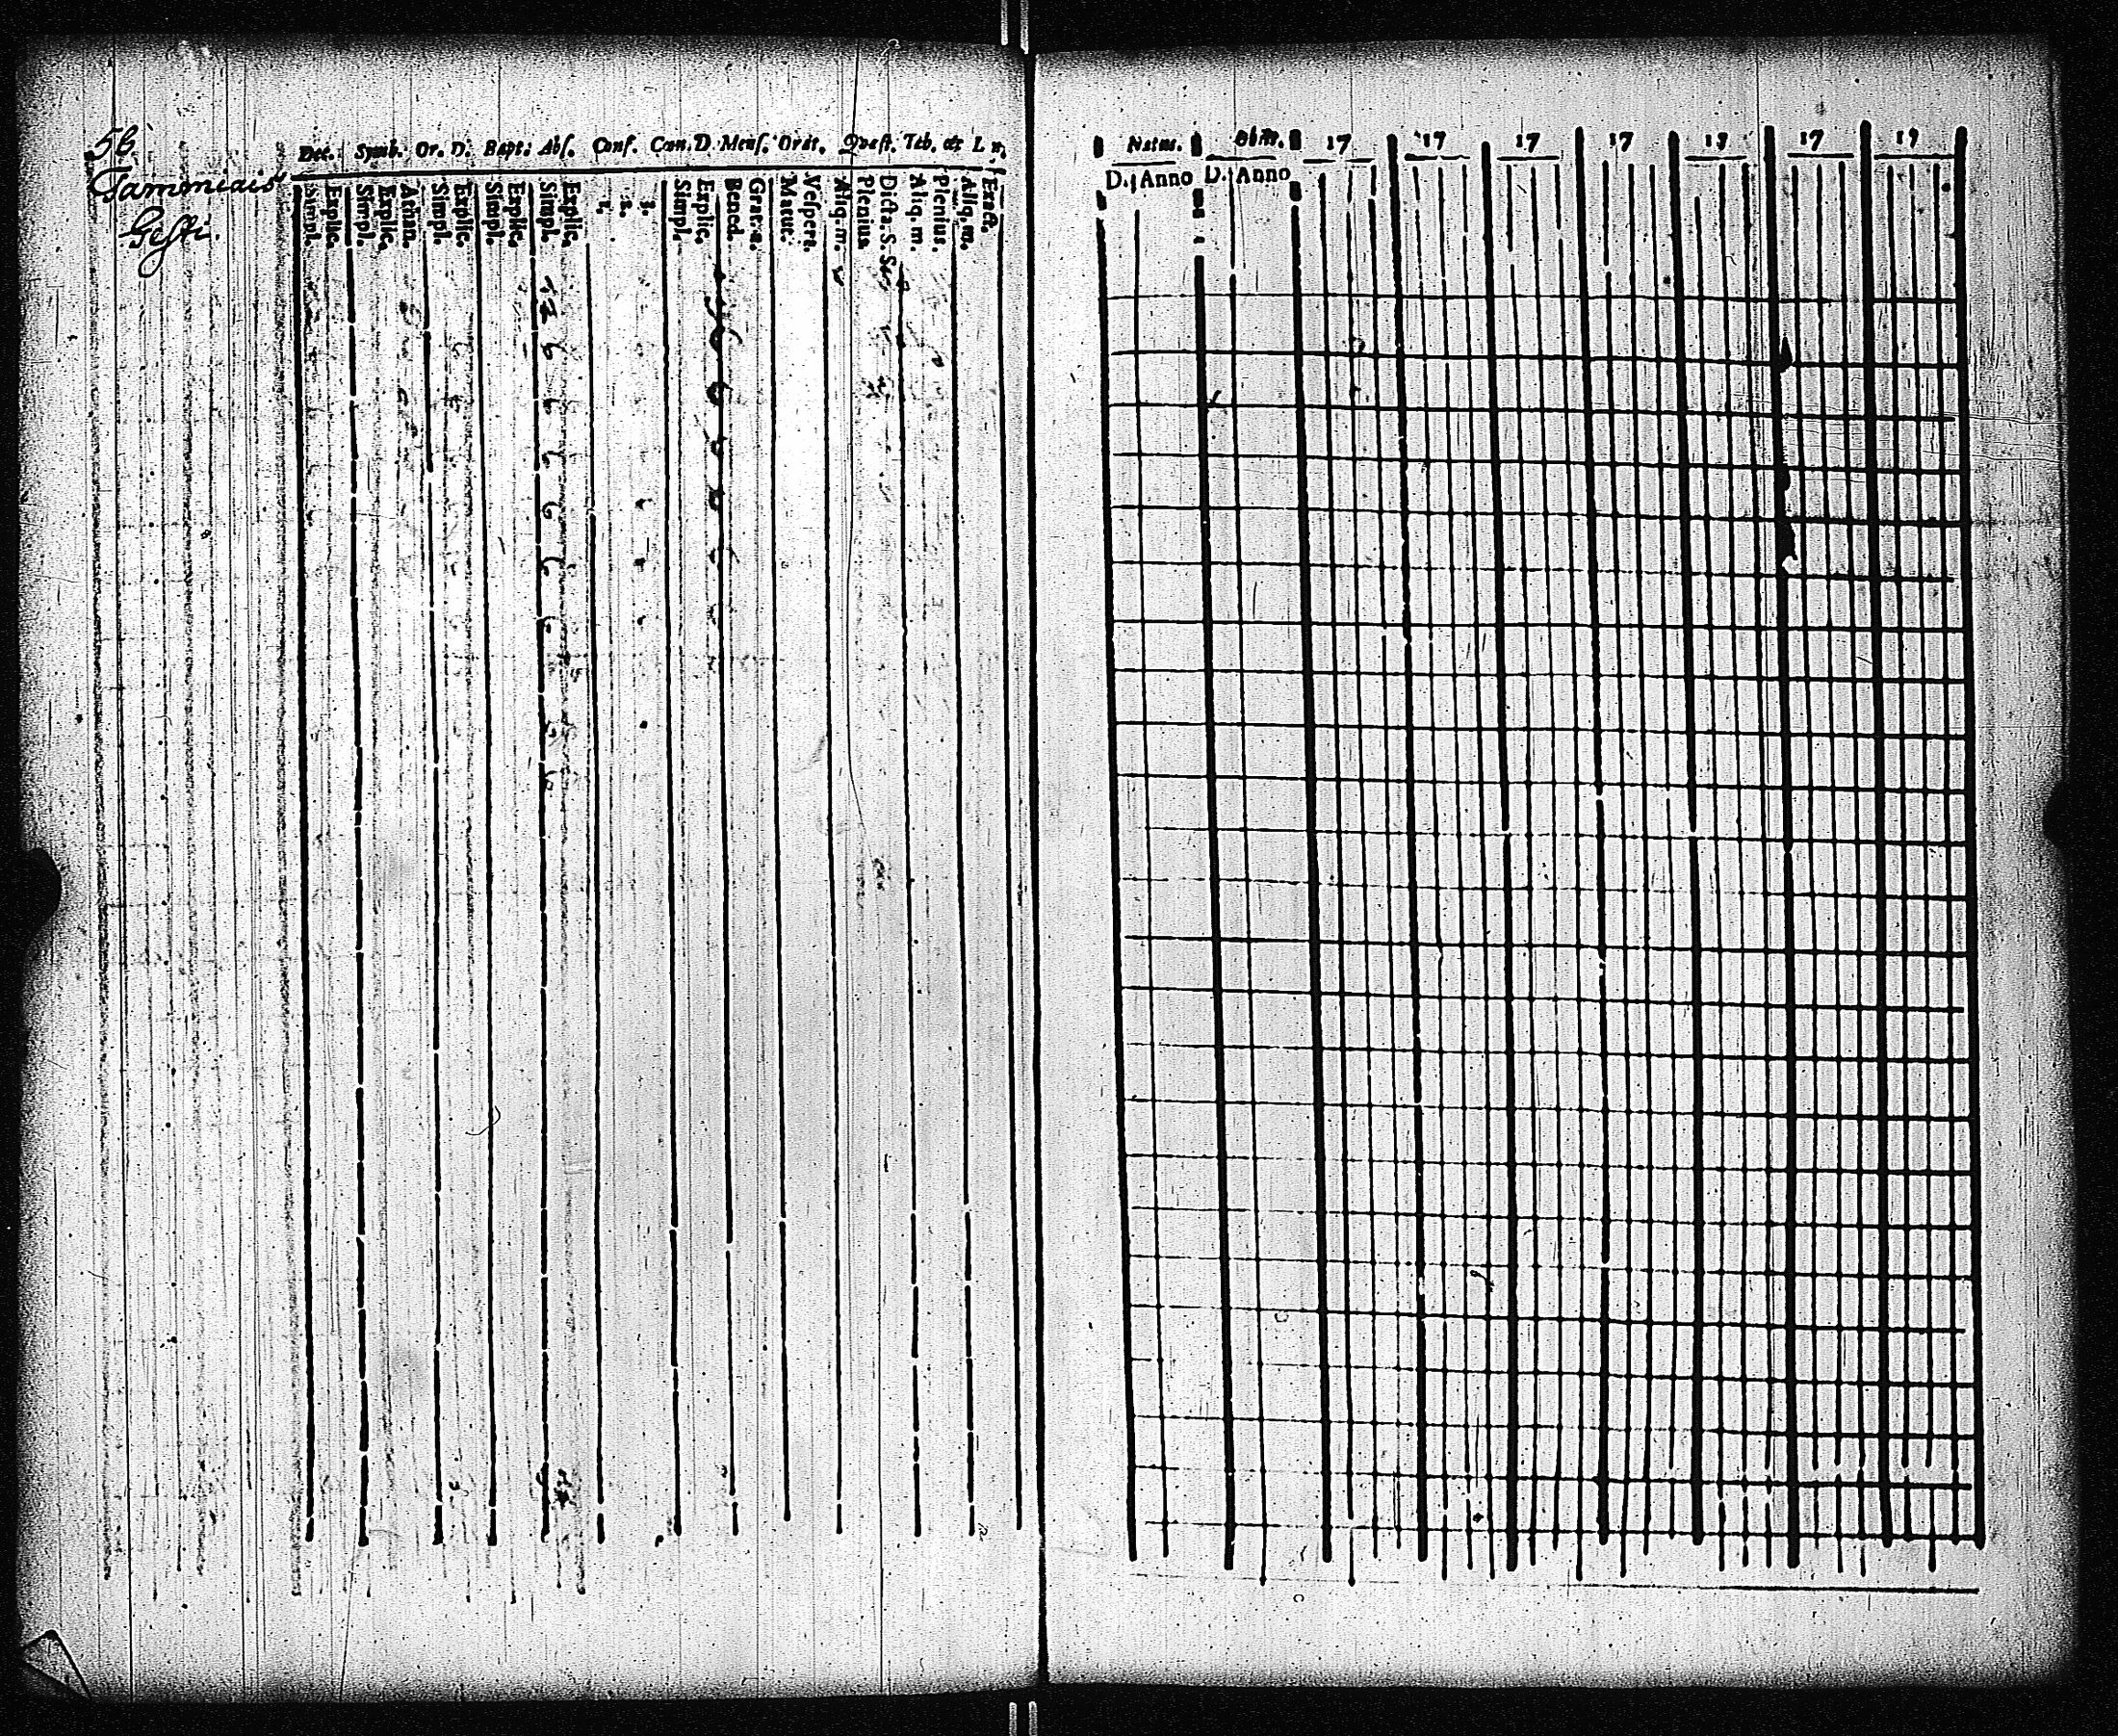 56
Tammiais
Gesti.
Dec. Symb. Or. D. Bapt: Abs. Conf. Cœn. D. Mens. Orat. Quæst. Tab. œc L n.
Simpl. Explic. Simpl. Explic. Athan. Simpl. Explic. Simpl. Explic. Simpl. Explic. 1. 2. 3. Simpl. Explic. Bened. Grat. a. Matut. Vespert. Aliq. m. Plenius Dicta. S. S. Aliq. m. Plenius. Aliq. m. Exact.
Natus. Obiit. 17 17 17 17 17 17 17
D. Anno D. Anno